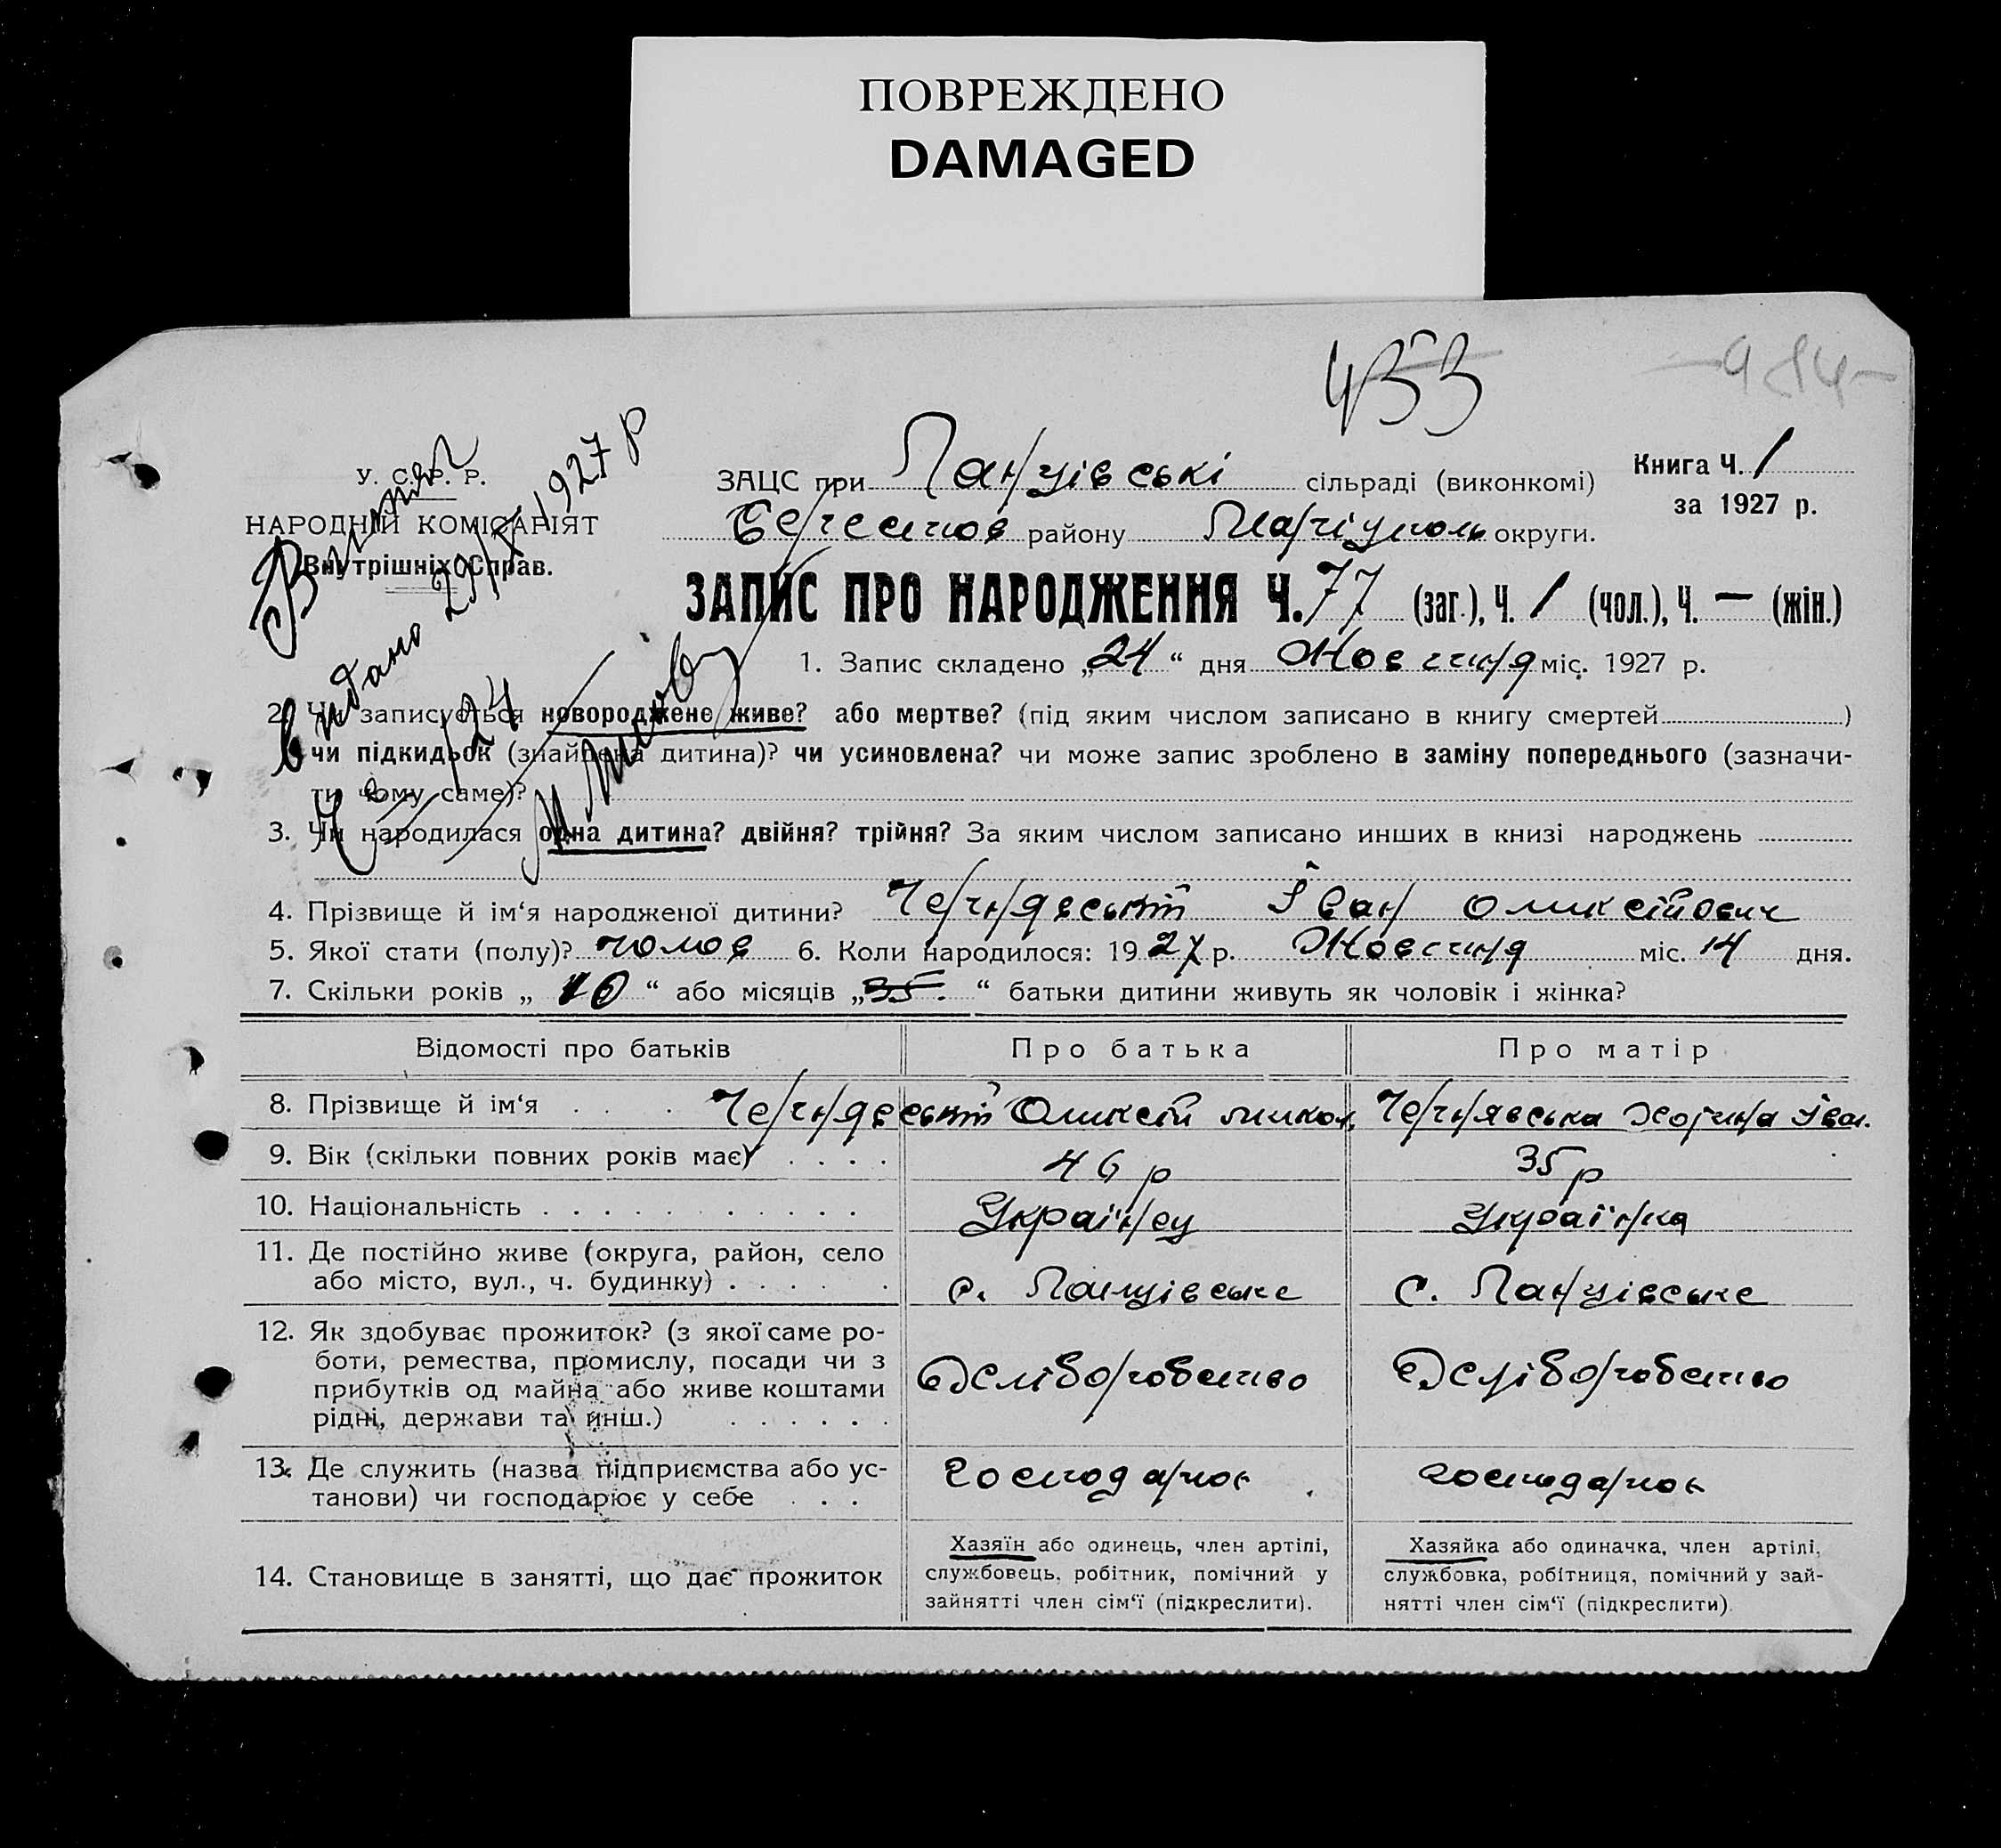 ПОВРЕЖДЕНО
DAMAGED
433
У. С. Р. Р.
НАРОДНІЙ КОМІСАРІЯТ
Внутрішніх Справ.
видано 24/X 1927 р
ЗАЦС при Ланцівські сільраді (виконкомі)
Книга Ч. 1
за 1927 р.
району Маріуполь округи.
ЗАПИС ПРО НАРОДЖЕННЯ Ч. 77 (заг.), Ч. 1 (чол.), Ч. — (жін.)
1. Запис складено „24“ дня Жовтня міс. 1927 р.
2. Чи записується новороджене живе? або мертве? (під яким числом записано в книгу смертей )
чи підкидьок (знайдена дитина)? чи усиновлена? чи може запис зроблено в заміну попереднього (зазначи-
ти чому саме)?
3. Чи народилася одна дитина? двійня? трійня? За яким числом записано инших в книзі народжень
4. Прізвище й ім‘я народженої дитини? Чернявський Іван Оликсійович
5. Якої стати (полу)? чолов 6. Коли народилося: 1927 р. Жовтня міс. 14 дня.
7. Скільки років „10“ або місяців „35.“ батьки дитини живуть як чоловік і жінка?
Відомості про батьків Про батька Про матір
8. Прізвище й ім‘я . . . Чернявський Оликсій микол. Чернявська Іван.
9. Вік (скільки повних років має) . . . . 46 р 35 р
10. Національність . . . . . . . . . . . Українец Українка
11. Де постійно живе (округа, район, село
або місто, вул., ч. будинку) . . . . . . с. Ланцівське с. Ланцівське
12. Як здобуває прожиток? (з якої саме ро-
боти, ремества, промислу, посади чи з
прибутків од майна або живе коштами
рідні, держави та инш.) . . . . . .
Хліборобство Хліборобство
13. Де служить (назва підприємства або ус-
танови) чи господарює у себе . . .
господарює господарює
14. Становище в занятті, що дає прожиток
Хазяїн або одинець, член артілі,
службовець, робітник, помічний у
зайнятті член сім‘ї (підкреслити).
Хазяйка або одиначка, член артілі,
службовка, робітниця, помічний у зай-
нятті член сім‘ї (підкреслити).